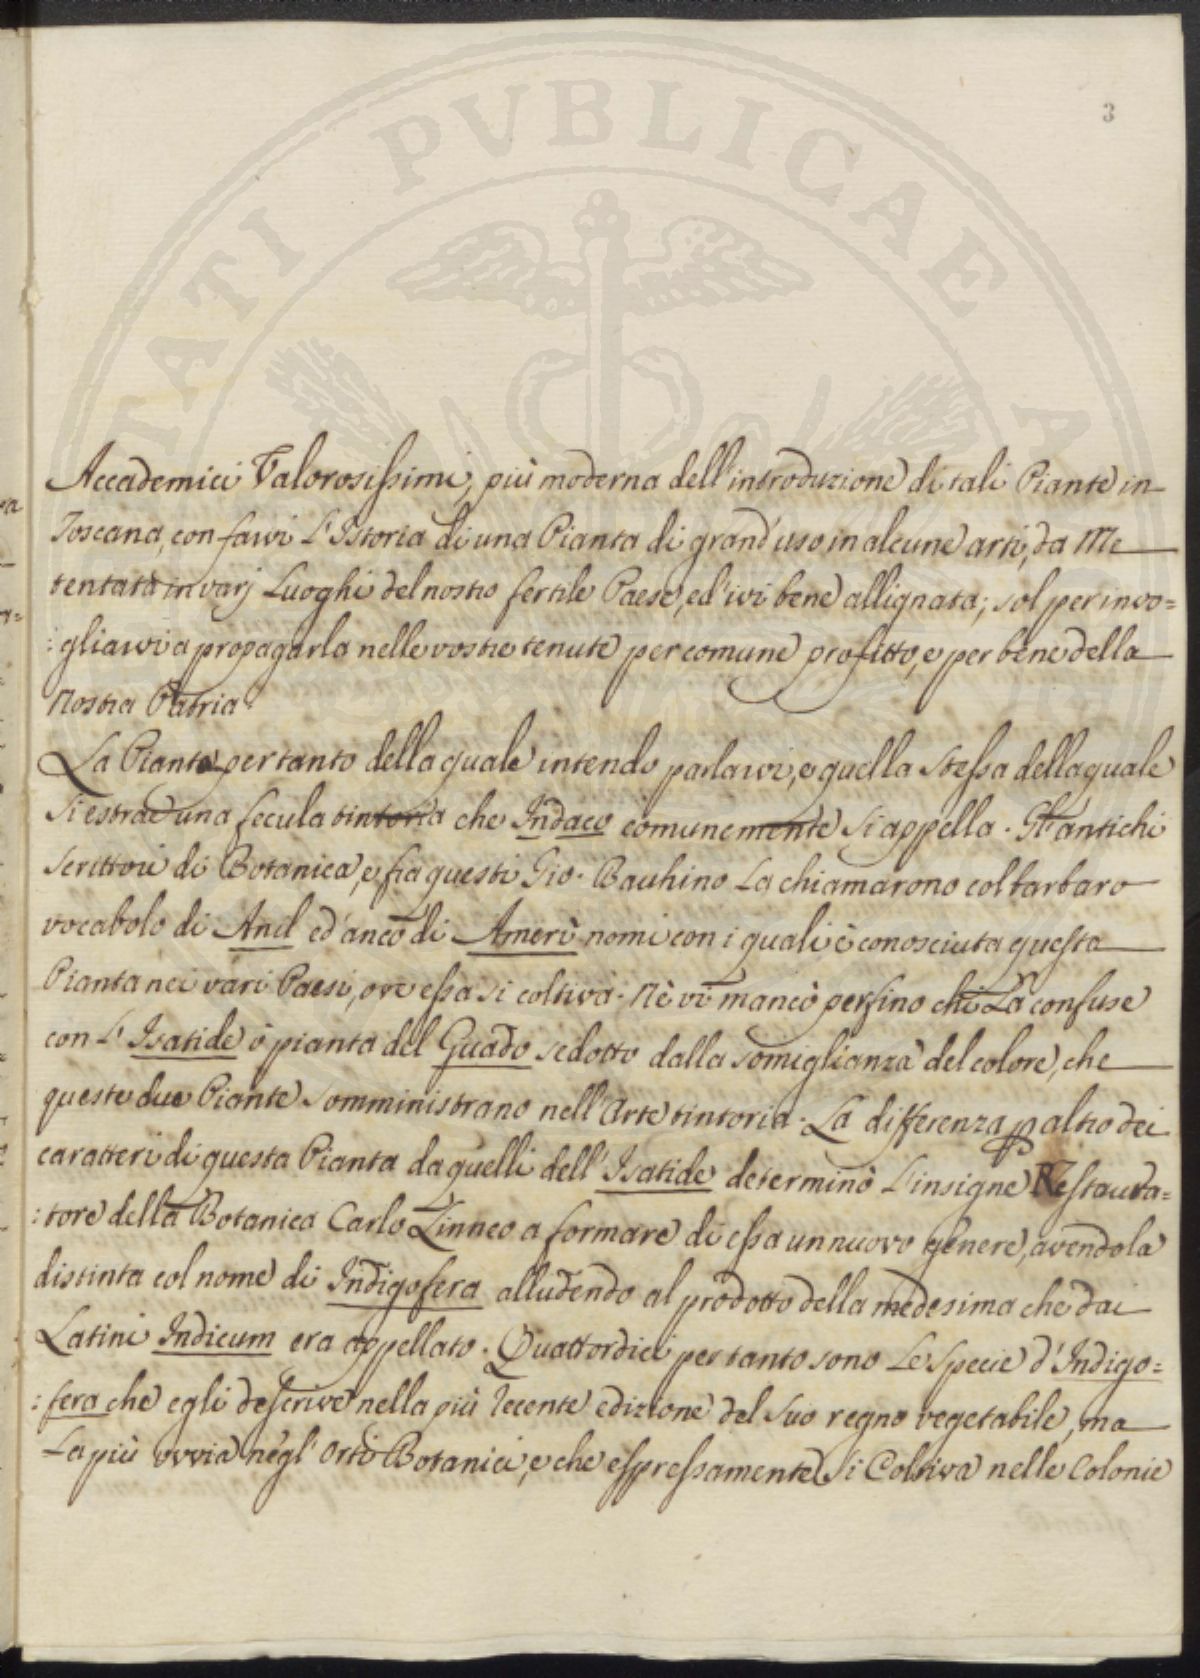 PROSPERITATI PVBLICAE A
3
Accademici Valorosissimi, più moderna dell'introduzione di tali Piante in
Toscana, con farvi L'Istoria di una Pianta di grand'uso in alcune arti, da Me
tentata in varj Luoghi del nostro fertile Paese, ed' ivi bene allignata; sol per invo=
:gliarvi a propagarla nelle vostre tenute per comune profitto, e per bene della
Nostra Patria.
La Pianta pertanto della quale intendo parlarvi, e quella stessa della quale
si estrae una fecula tintoria che Indaco comunemente si appella. Gl'antichi
scrittori di Botanica, e fra questi Gio. Bauhino La chiamarono col barbaro
vocabolo di Anil ed'anco di Amerì nomi con i quali è conosciuta questa
Pianta nei vari Paesi, ove essa si coltiva. Nè vi mancò persino chi La confuse
con L'Isatide ò pianta del Guado sedotto dalla somiglianza del colore, che
queste due Piante somministrano nell'Arte tintoria. La differenza p altro dei
caratteri di questa Pianta da quelli dell'Isatide determinò L'insigne Restaura=
:tore della Botanica Carlo Linneo a formare di essa un nuovo genere, avendola
distinta col nome di Indigofera alludendo al prodotto della medesima che dai
Latini Indicum era appellato. Quattordici pertanto sono Le specie d'Indigo=
:fera che egli descrive nella più recente edizione del suo regno vegetabile, ma
La più ovvia negl'Orti Botanici, e che espressamente si Coltiva nelle Colonie